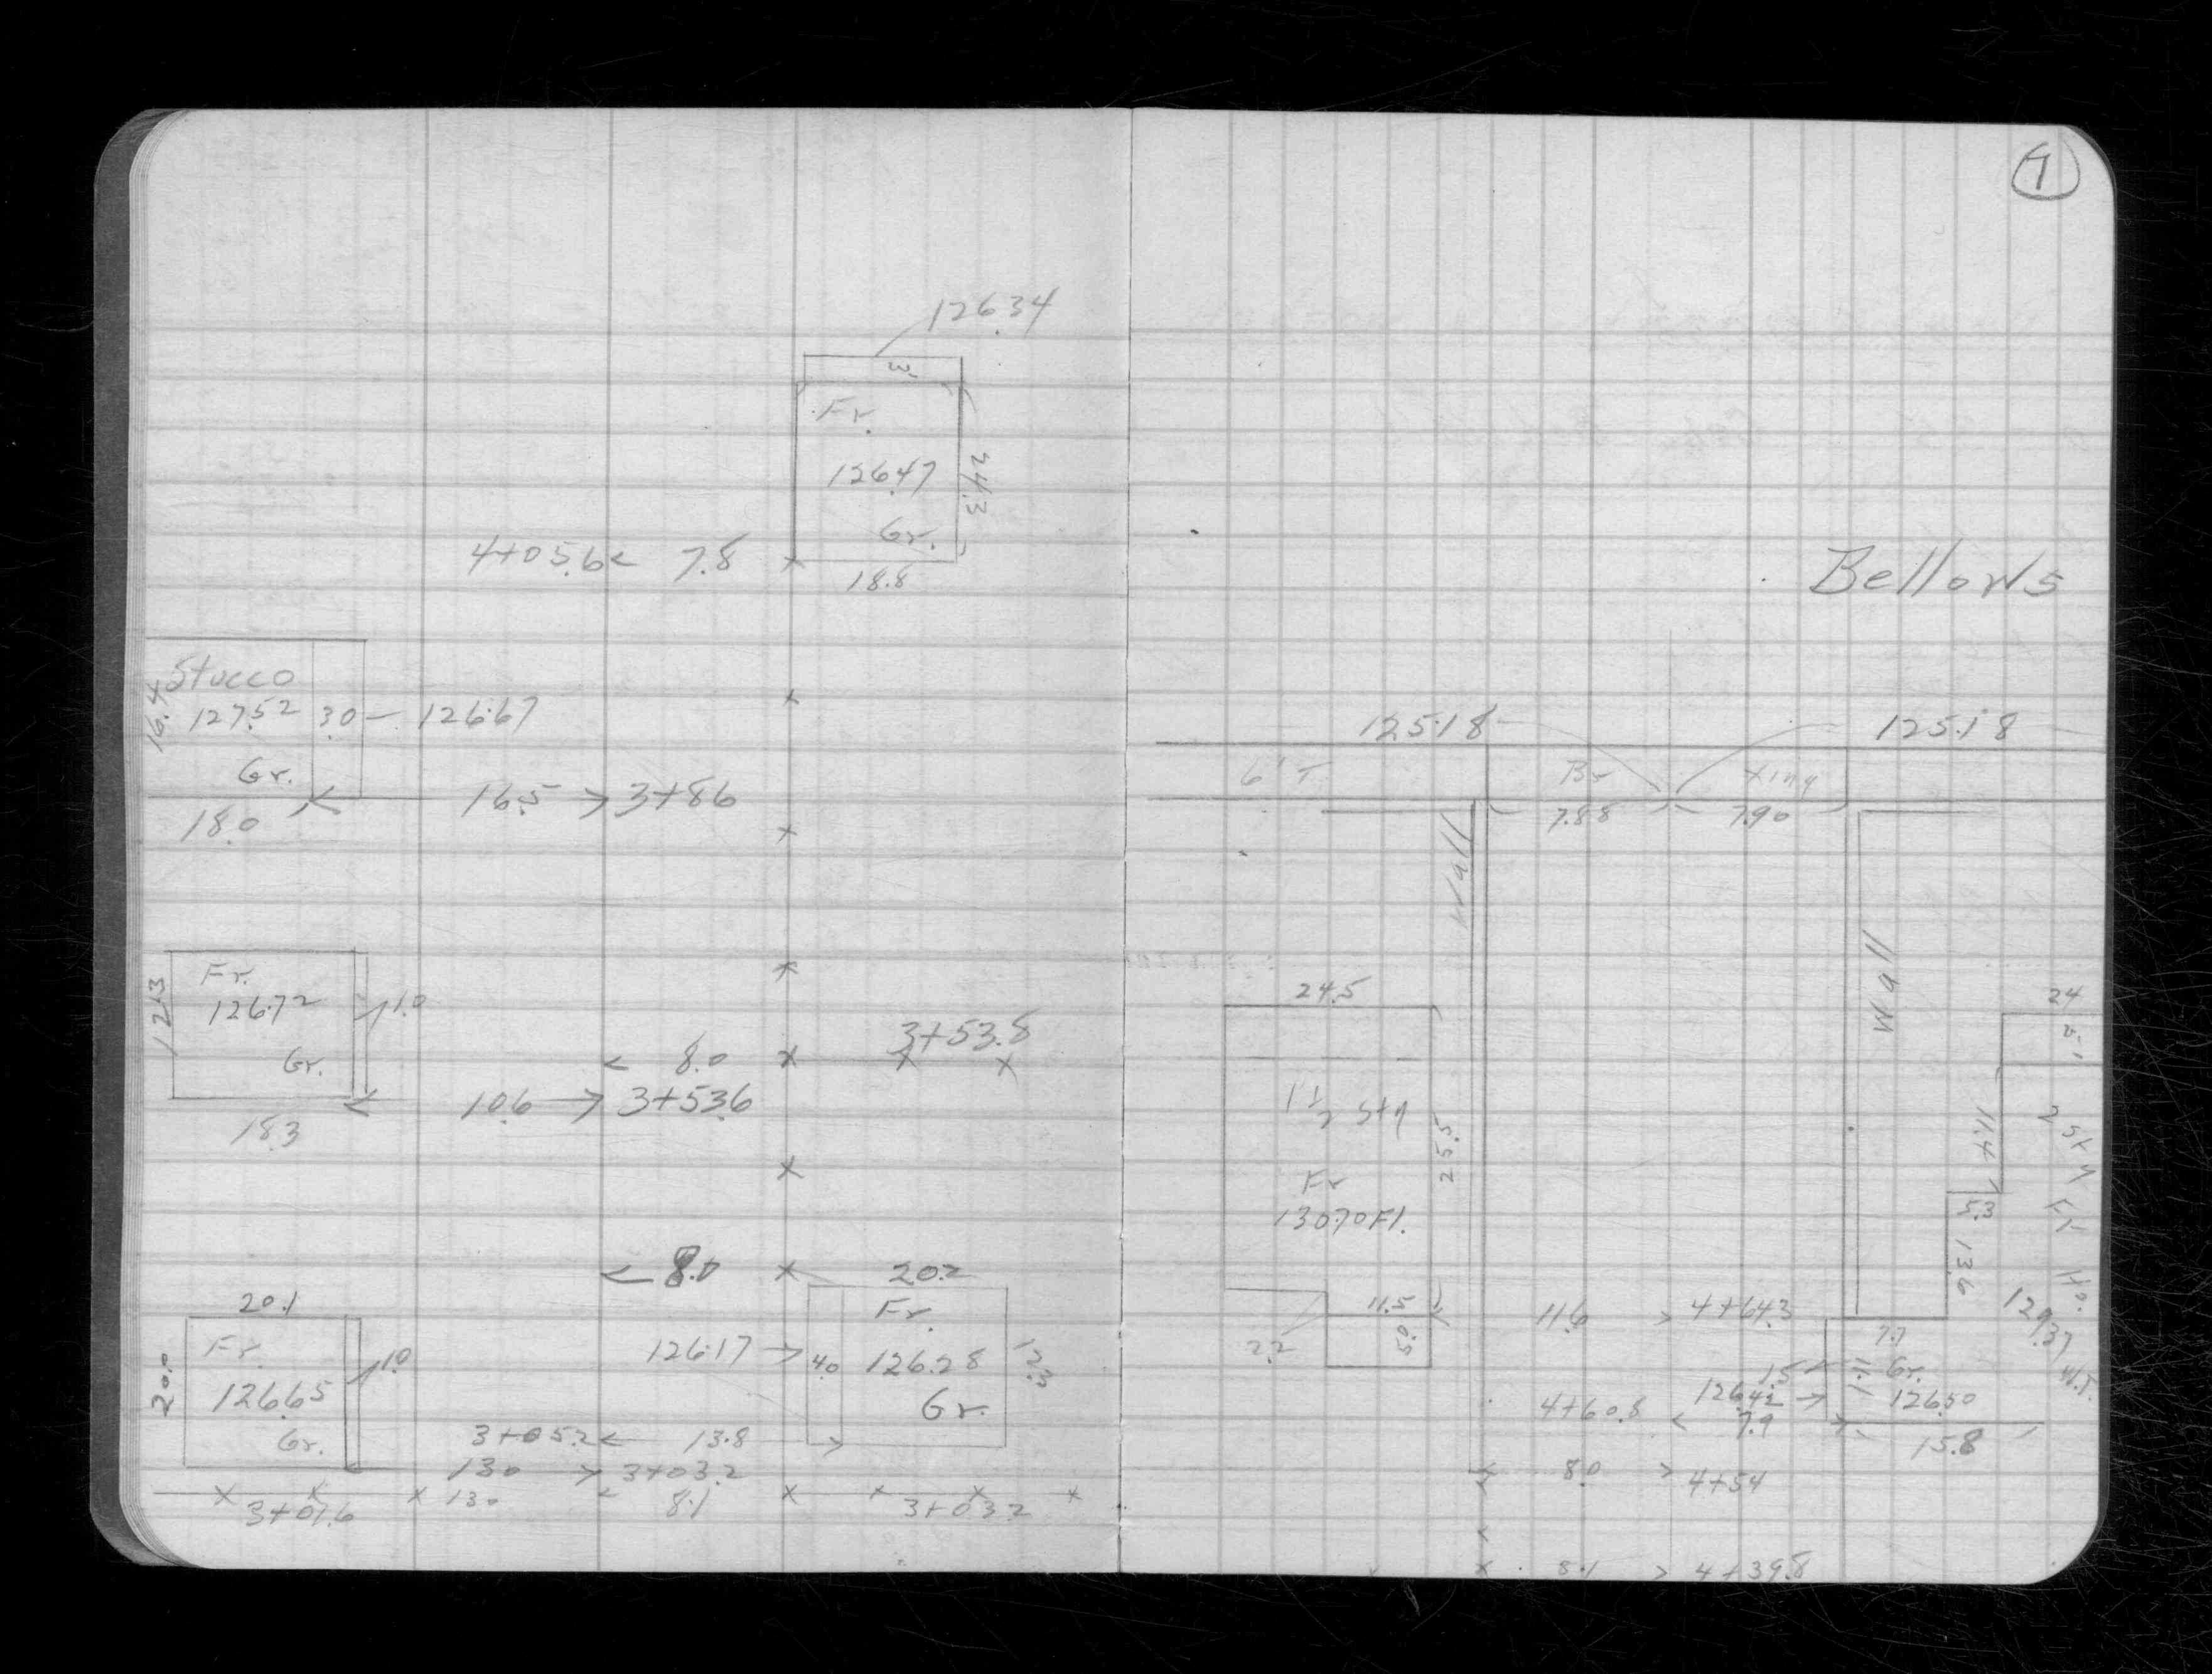 126.34
3'
Fr.
126.47
24.3
Gr.
4+05.6 < 7.8
18.8
Stucco
16.4
127.52 3.0 - 126.67
Gr.
16.5 → 3+86
18.0
Fr.
12.3
126.72
1.0
Gr.
3+53.8
< 8.0
10.6 → 3+53.6
18.3
< 8.0
20.2
20.1
Fr.
Fr.
126.17 →
4.0
126.28
Gr.
20.0
126.65
1.0
Gr.
3+05.2 < 13.8 →
13.0 → 3+03.2
13.0 < 8.1
3+01.6
3+03.2
7
Bellows
125.18
125.18
6' T
Br
Xing
7.88
7.90
Wall
Wall
24.5
1 1/2 Sty
25.5
Fr
130.70 Fl.
11.5
5.0
2.2
11.6 > 4+64.3
24
11.4
5.3
13.6
2
Ho.
129.37
W.T.
7.7
1.5
11.1
Gr.
126.42 →
126.50
4+60.8 < 7.9
15.8
8.0 > 4+54
8.1 > 4+39.8